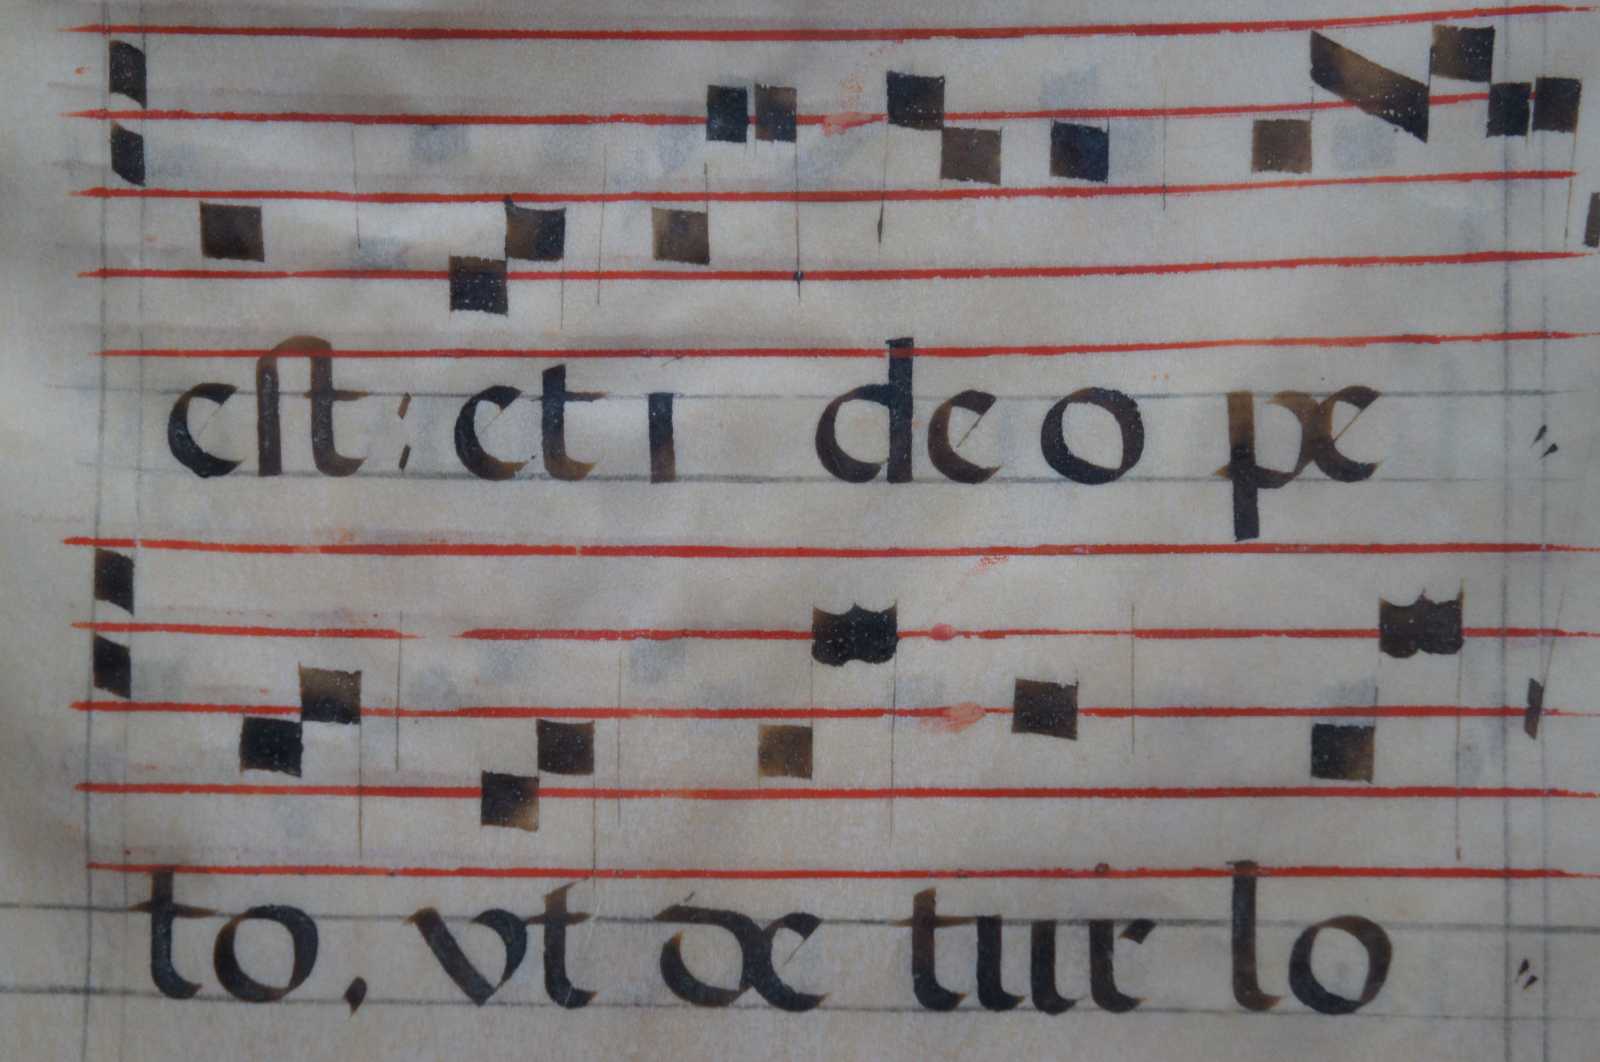 eſt : et i de o pe //
to, vt de tur lo //